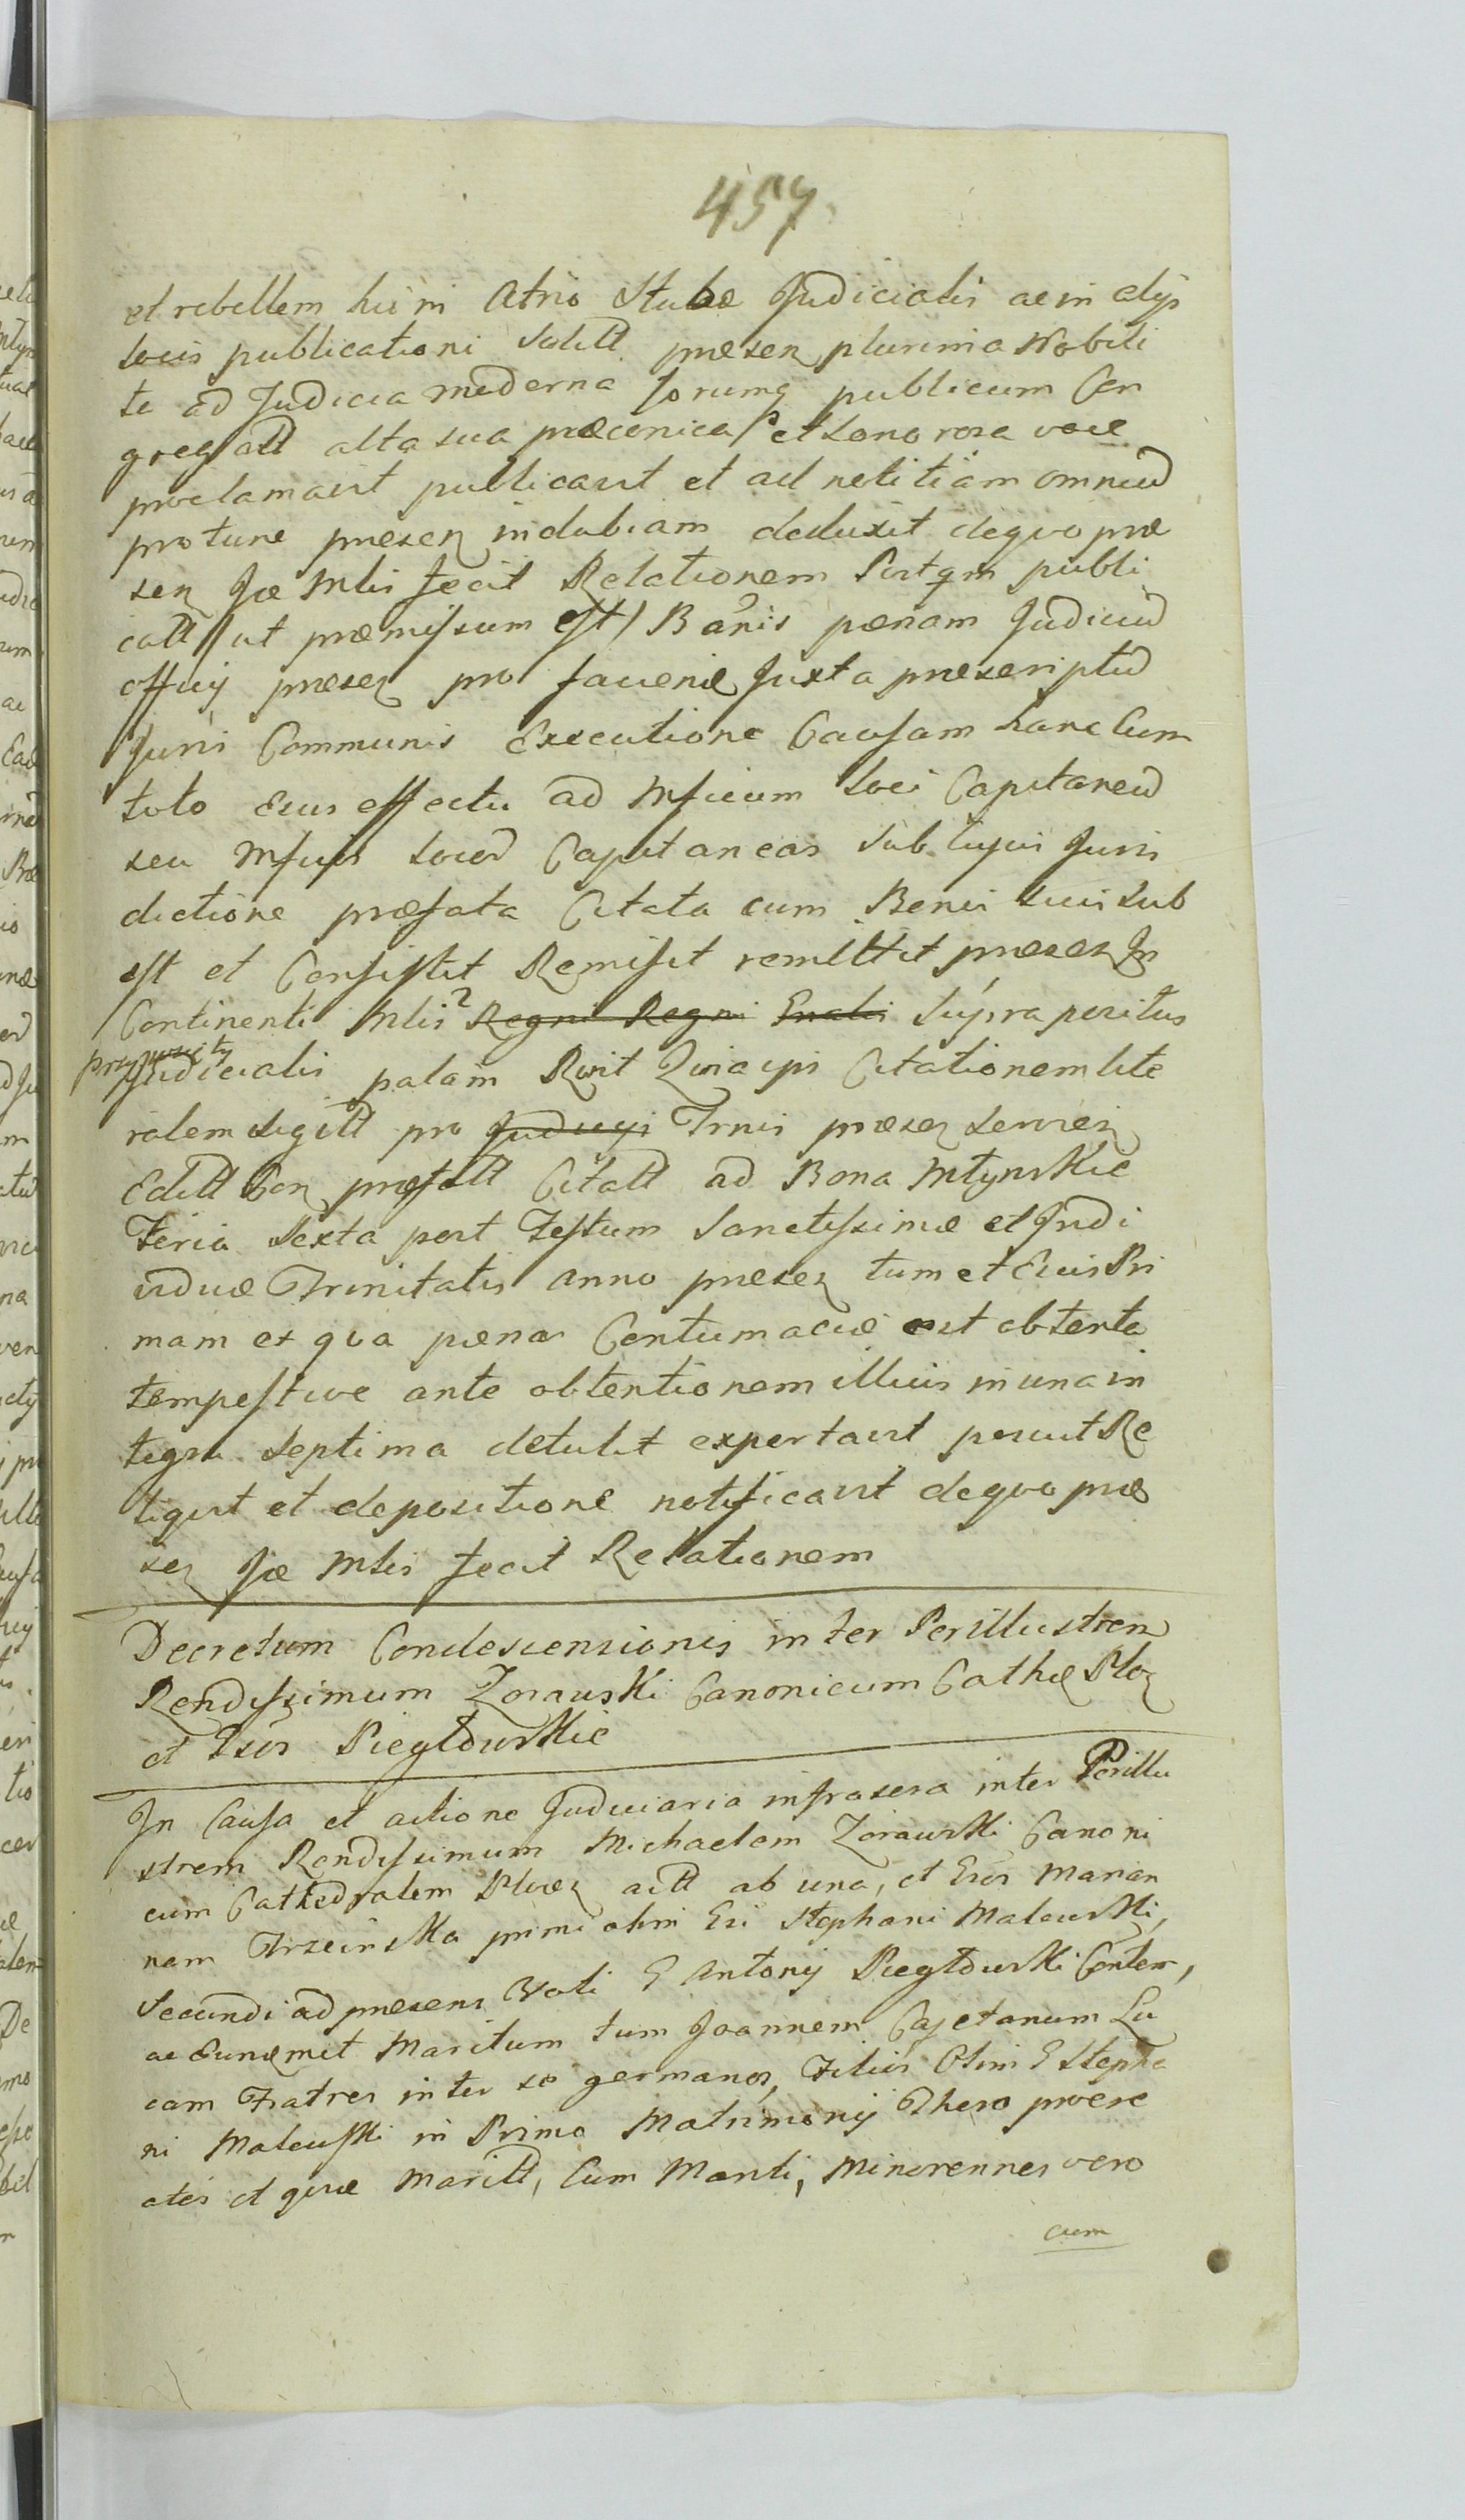 457
et rebellem hic in Atrio Stubæ Judicialis ac in alijs
locis publicationi solitt præsen plurima Nobili
te ad Judicia moderna forumq publicum Con
gregatt alta sua præconica et sonorosa voce
proclamavit publicavit et ad notitiam omniud
protunc præsen indubiam deduxit dequo præ
sen Jæ Mlis fecit Relationem Postqm publi
catt /ut præmissum est/ Banis pænam Judiciud
officij præsen pro facienẽ Juxta præscriptud
Juris Communis Executione Causam hanc Cum
toto Eius effectu ad Mficum loci Capitaneud
seu Mficos locod Capitaneos sub cujus Juris
dictione præfata Citata cum Bonis suis sub
est et Consistit Remisit remittit præsen In
Continenti Mlis Regni Regni Gnalis supra positus
Judicialis palam Rvit Quia ipse Citationem lite
ralem sigilt pro Judicijs Trnis præsen servien
Editt Con præfatt Citatt ad Bona Młynskie
Feria Sexta post Festum Sanctissimæ et Indi
viduæ Trinitatis anno præsen tum et Eius Pri
mam ex qva pæna Contumaciæ est obtenta
tempestive ante obtentionem illius in una in
tegra Septima detulit exportavit posuit Re
liqvit et depositione notificavit deqvo præ
sen Jæ Mlis fecit Relationem
Decretum Condescensionis inter Perillustrem
Rendissimum Zorawski Canonicum Cathæ Plo
et Gsos Piegłowskie
In Causa et actione Judiciaria infrascra inter Perillu
strem Rendissimum Michaelem Zorawski Canoni
cum Cathedralem Plocen actt ab una, et Gsos Marian
nam Trzcinska primi olim Gsi Stephani Malewski,
Secundi ad præsens Voti G Antonij Piegłowski Conten,
ac Eundmet Maritum tum Joannem Cajetanum Lu
cam Fratres inter se germanos, Filios Olim G Stepha
ni Malewski in Primo Matrimonij Thoro procre
atos et qvæ Maritt, Cum Mariti, Minorennes vero
cum